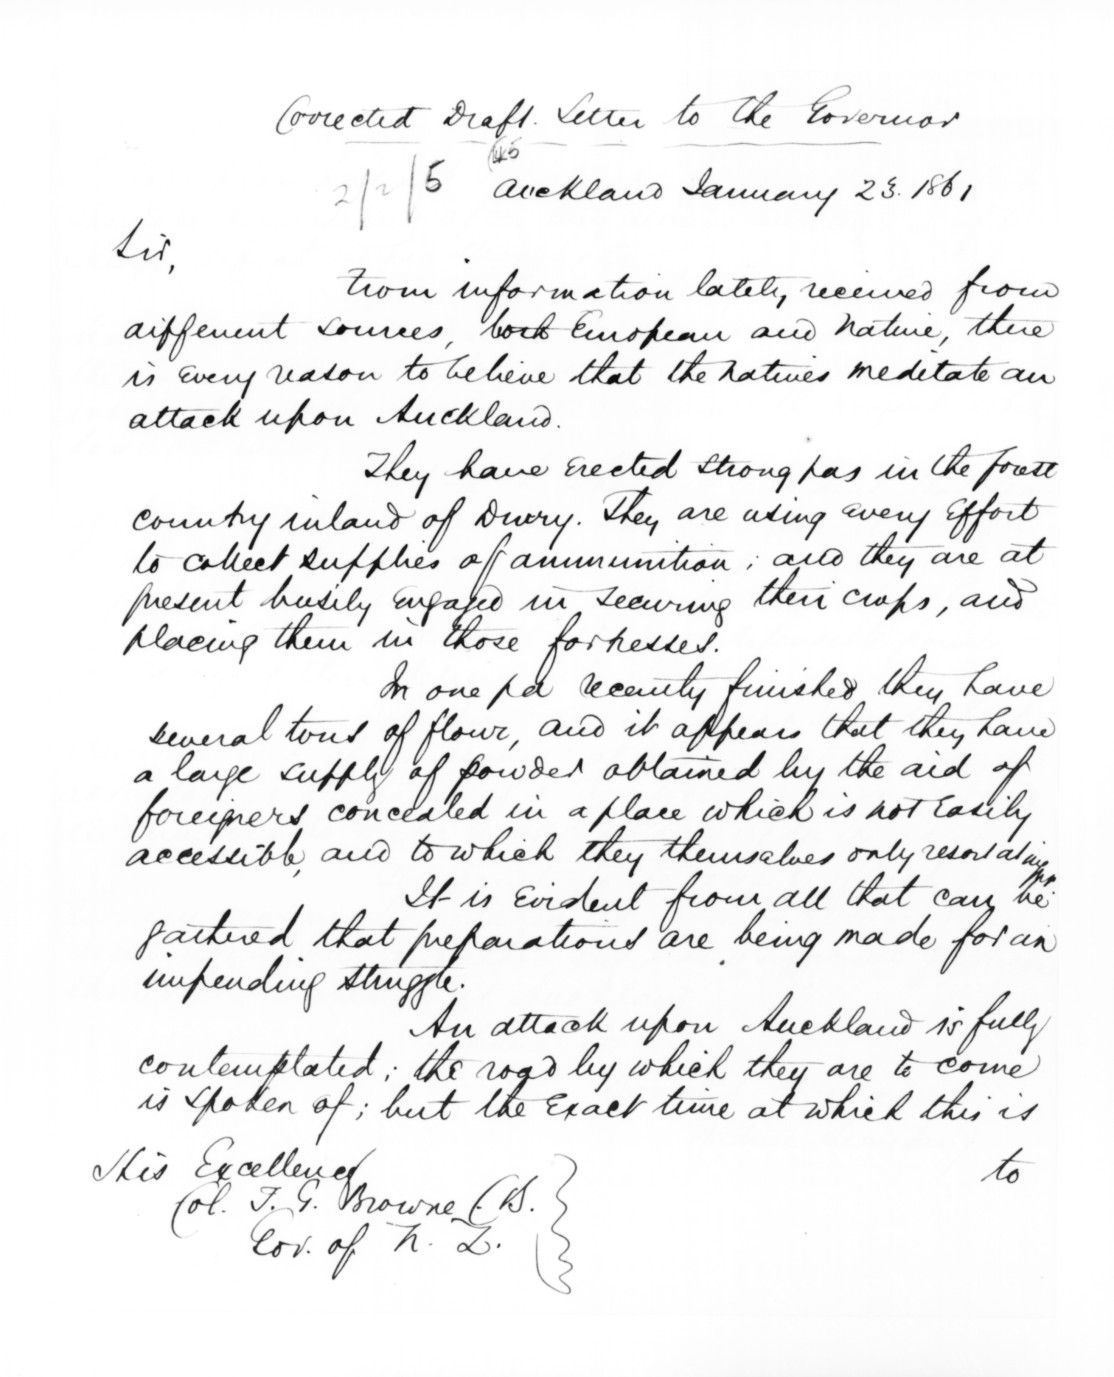 Corrected Draft. Letter to the Governor
2/2/5 Auckland January 23. 1861
Sir,
From information lately received from
different sources, both European and Native, there
is every reason to believe that the natives meditate an
attack upon Auckland.
They have erected strong pas in the forest
country inland of Drury. They are using every effort
to collect supplies of ammunition; and they are at
present busily engaged in securing their crops, and
placing them in those fortresses.
In one pa recently finished they have
several tons of flour, and it appears that they have
a large supply of powder obtained by the aid of
foreigners concealed in a place which is not easily
accessible, and to which they themselves only resort at night
It is evident from all that can be
gathered that preparations are being made for an
impending struggle.
An attack upon Auckland is fully
contemplated; the road by which they are to come
is spoken of; but the exact time at which this is
to
His Excellency
Col. T. G. Browne C.B.
Gov. of N. Z.